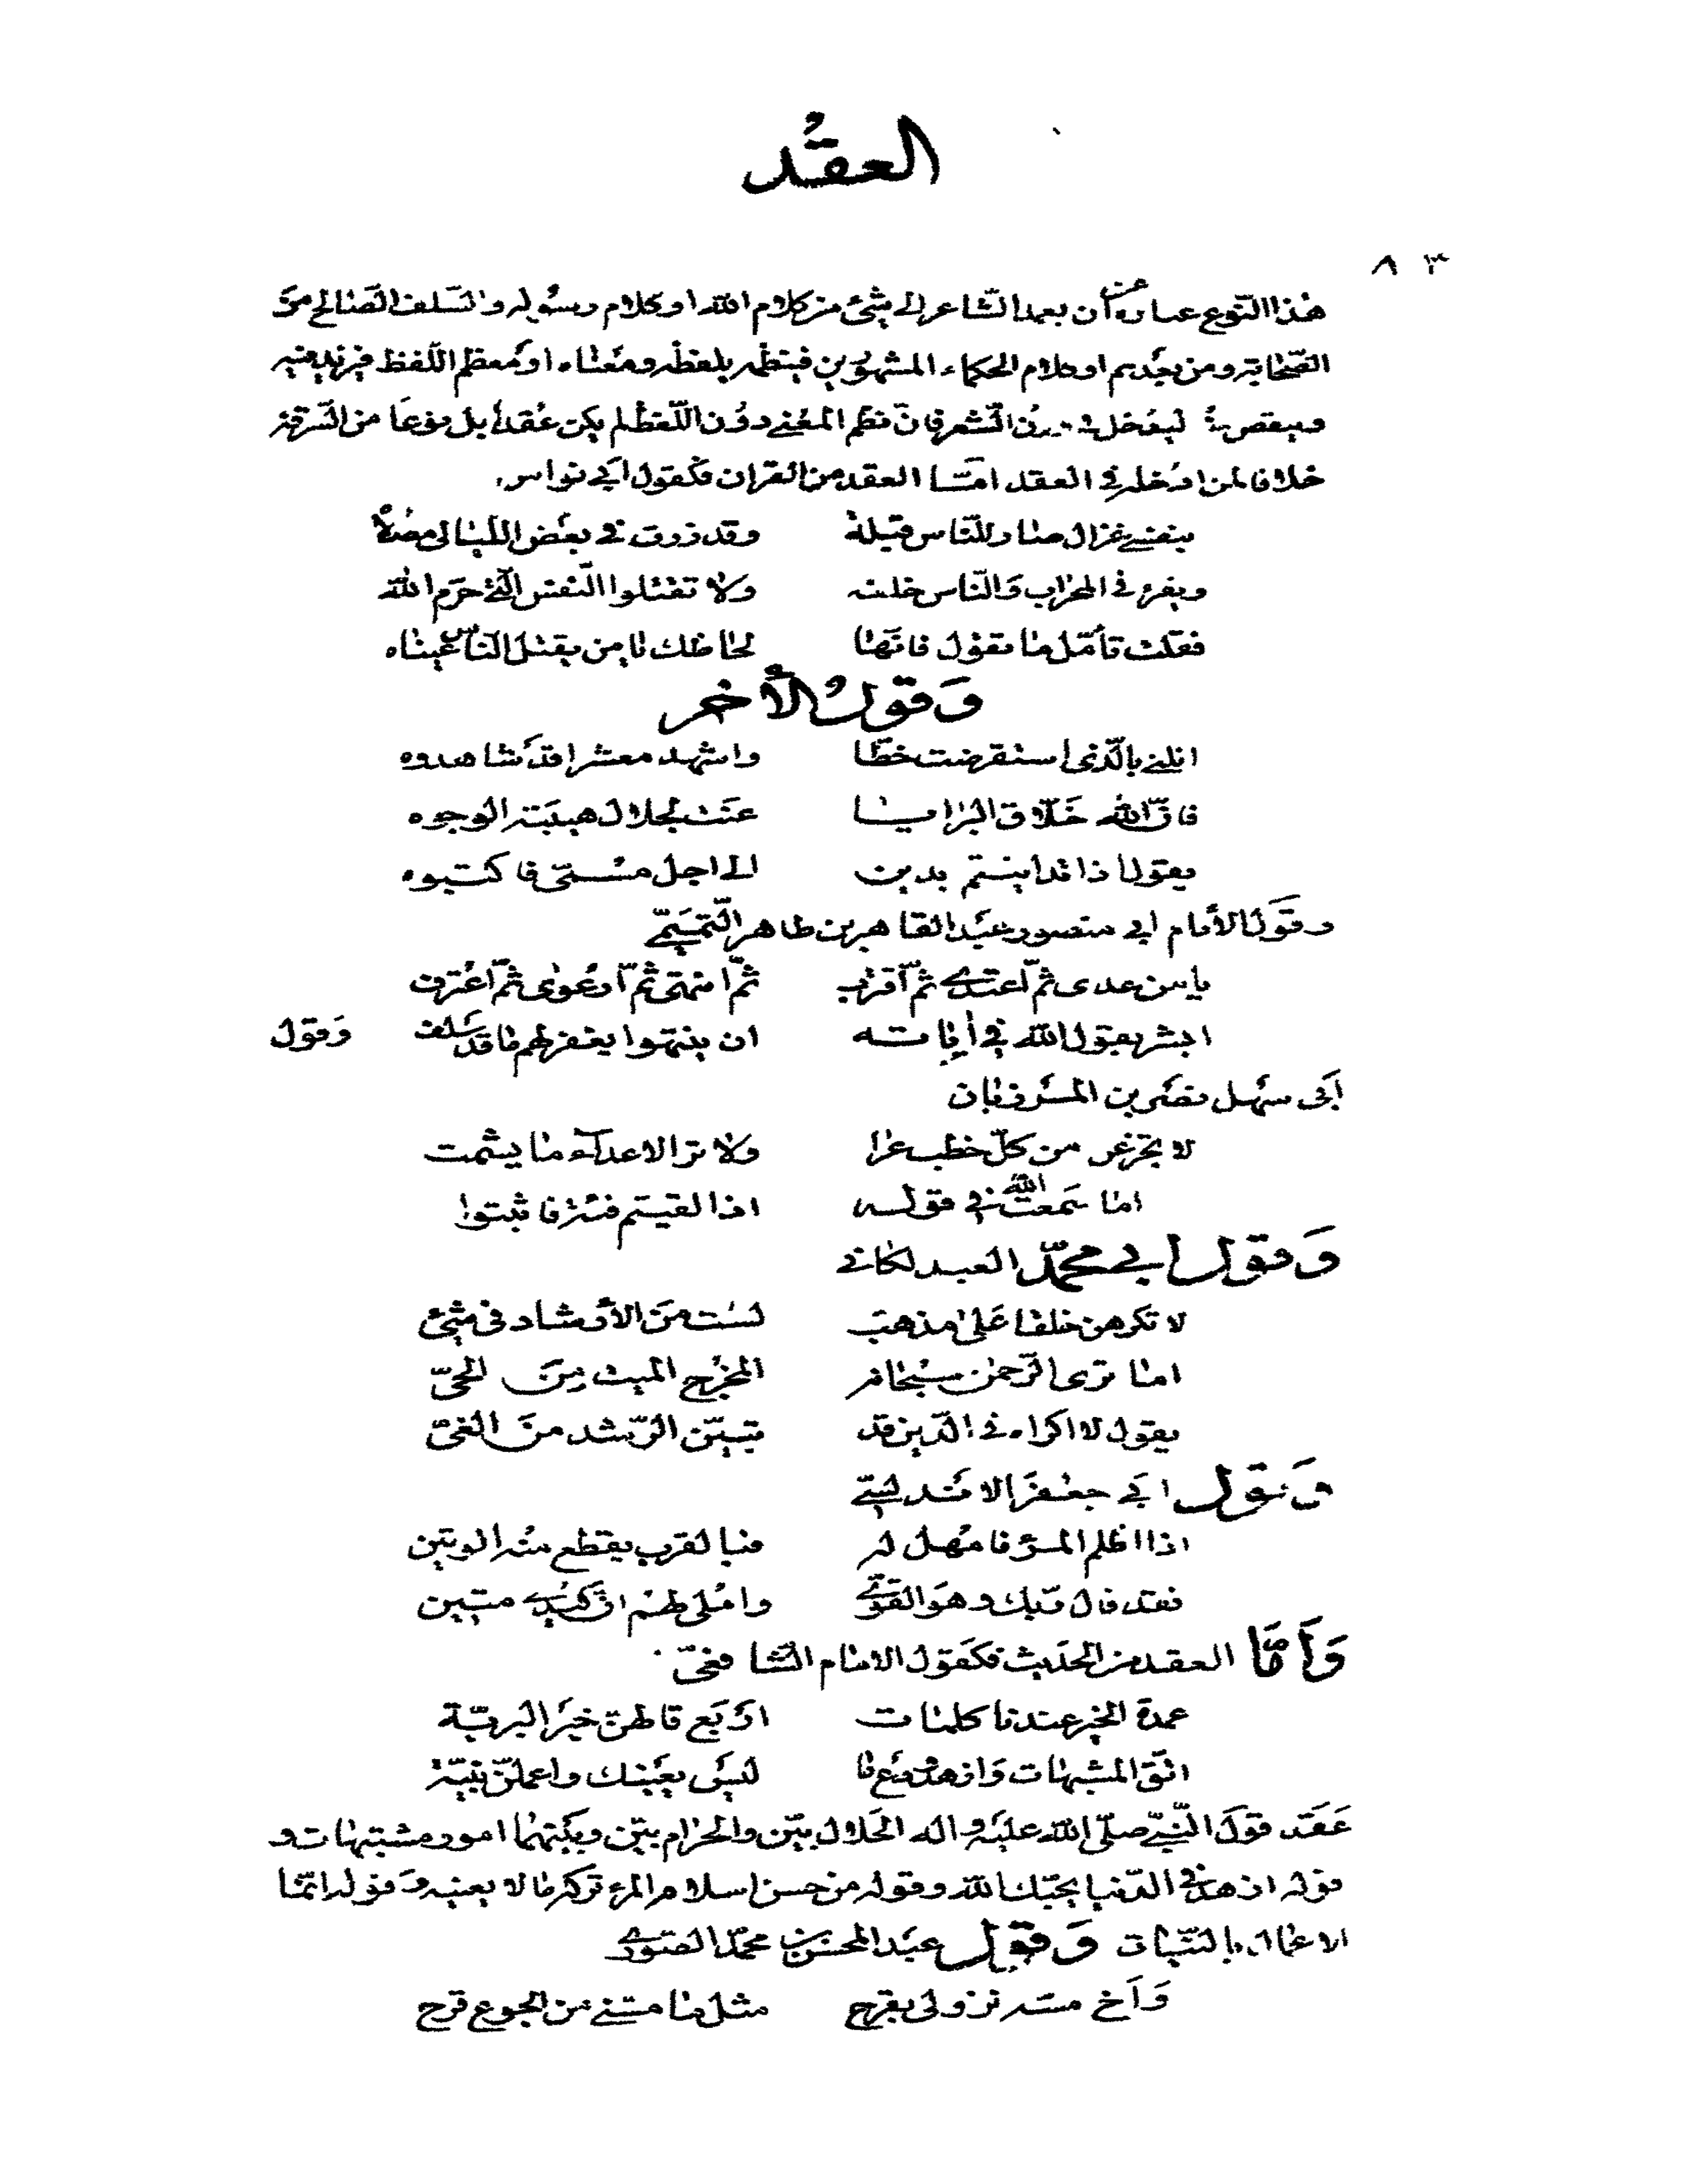 العقد
٨٣
هذا النّوع عبارة عن أن يعمد الشّاعر إلى شئ من كلام الله او كلام رسوله والسّلف الصّالح من
الصّحابة ومن بعدهم او كلام الحكماء المشهورين فينظمه بلفظه ومعناه او معظم اللّفظ فيزيد فيه
وينقص منه ليدخل في وزن الشّعر فان نظم المعنى دون اللّفظ لم يكن عقداً بل نوعا من السّرقة
خلافا لمن ادخله في العقد امّا العقد من القران فكقول ابي نواس
بنفسي غزال صار للنّاس قبلة وقد زرت في بعض اللّيالي مصلّاه
ويقرء في المحراب والنّاس خلفه ولا تقتلوا النّفس الّتي حرّم الله
فقلت تأمّل ما تقول فانّها لحاظك يا من يقتل النّاس عيناه
وقول الأخر
انلني بالّذي استقرضت خطّا واشهد معشرا قد شاهدوه
فانّ الله خلّاق البرايا عنت لجلال هيبته الوجوه
يقول اذا تداينتم بدين الى اجل مسمّى فاكتبوه
وقول الأمام ابي منصور عبد القاهر بن طاهر التّميميّ
يا من عدى ثمّ اعتدى ثمّ اقترف ثمّ انتهى ثمّ ارعوى ثمّ اعترف
ابشر بقول الله في أياته ان ينتهوا يغفر لهم ما قد سلف وقول
أبي سهل نصر بن المرزبان
لا تجزعن من كلّ خطب عرا ولا تر الاعداء ما يشمت
اما سمعت الله في قوله اذا لقيتم فئة فاثبتوا
وقول ابي محمّد العبدلكاني
لا تكرهن خلقا على مذهب لست من الأرشاد في شئ
اما ترى الرّحمن سبحانه المخرج الميت من الحيّ
يقول لا اكراه في الدّين قد تبيّن الرّشد من الغيّ
وقول ابي جعفر الاندلسيّ
اذا اظلم المرء فامهل له فبالقرب يقطع منه الوتين
فقد قال ربّك وهو القويّ واملي لهم انّ كيدي متين
وأمّا العقد من الحديث فكقول الامام الشّافعيّ
عمدة الخير عندنا كلمات اربع قالهنّ خير البريّة
اتّق المشبهات وازهد ودع ما ليس يعينك واعملنّ بنيّة
عقد قول النّبيّ صلّى الله عليه واله الحلال بيّن والحرام بيّن وبينهما امور مشتبهات و
قوله ازهد في الدّنيا يحبّك الله وقوله من حسن اسلام المرء تركه ما لا يعنيه وقوله انّما
الاعمال بالنّيّات وقول عبد المحسن بن محمّد الصّوري
وأخ مسّه نزولي بقرح مثل ما مسّني من الجوع قرح